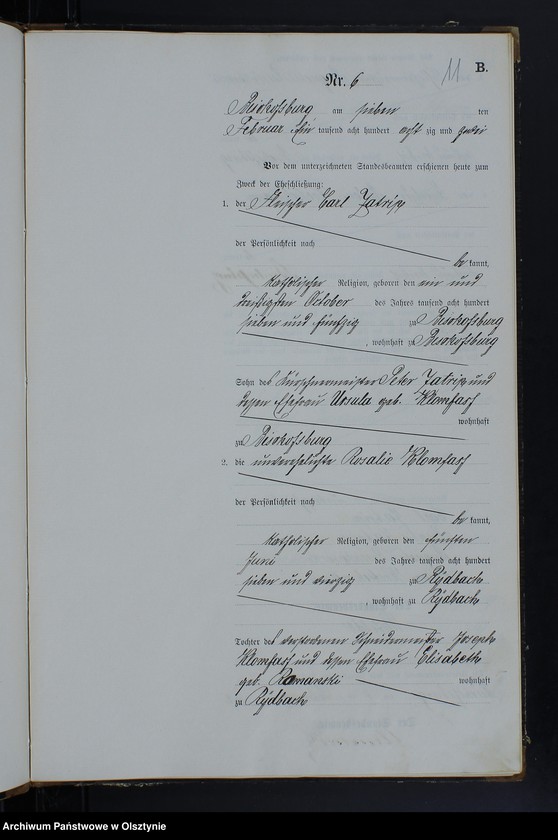 11 B.
Nr. 6
Bischofsburg am sieben ten
Februar Ein tausend acht hundert acht zig und zwei
Vor dem unterzeichneten Standesbeamten erschienen heute zum
Zweck der Eheschließung:
1. der Fleischer Carl
der Persönlichkeit nach
be kannt,
katholischer Religion, geboren den ein und
dreißigsten October des Jahres tausend acht hundert
sieben und fünfzig zu Bischofsburg
, wohnhaft zu Bischofsburg
Sohn des Kürschnermeister Peter und
dessen Ehefrau Ursula geb. Klomfass
wohnhaft
zu Bischofsburg
2. die unverehelichte Rosalie Klomfass
der Persönlichkeit nach
be kannt,
katholischer Religion, geboren den fünften
Juni des Jahres tausend acht hundert
sieben und vierzig zu Rydbach
, wohnhaft zu Rydbach
Tochter des verstorbenen Schneidermeister Joseph
Klomfass und dessen Ehefrau Elisabeth
geb. Romanski wohnhaft
zu Rydbach
Archiwum Państwowe w Olsztynie